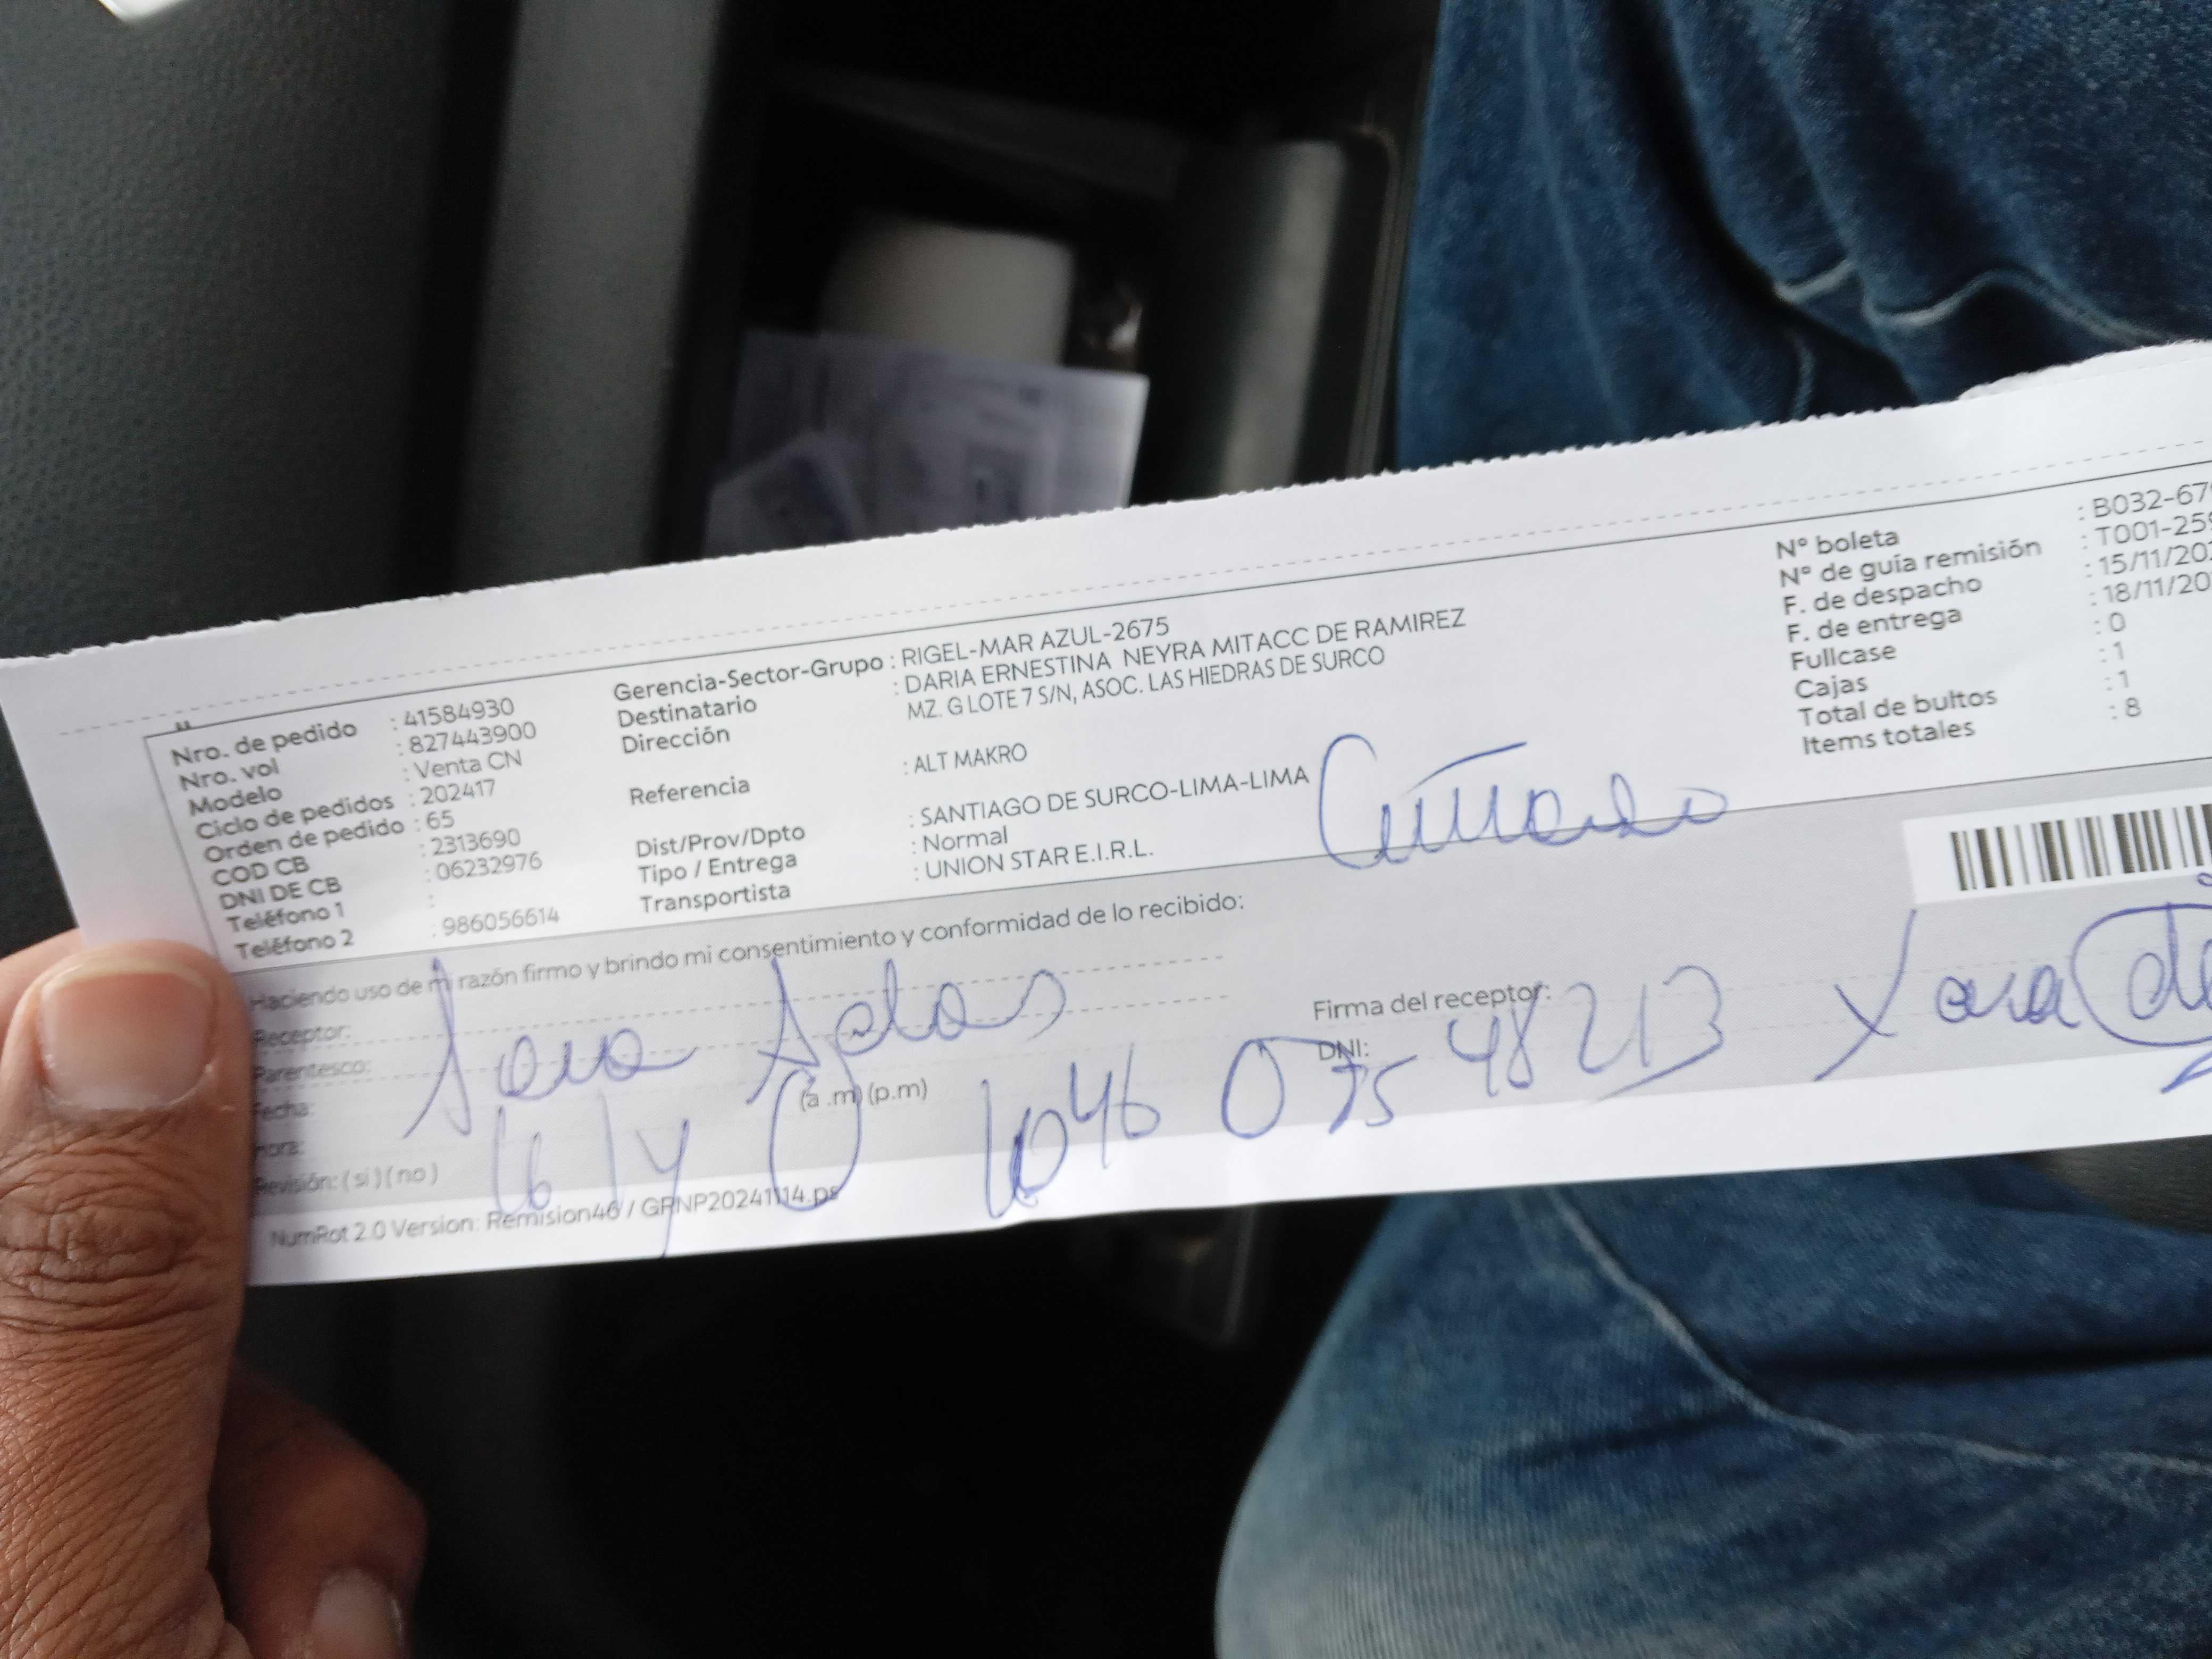 Nro. de pedido : 41584930
Nro. vol : 827443900
Modelo : Venta CN
Ciclo de pedidos : 202417
Orden de pedido : 65
COD CB : 2313690
DNI DE CB : 06232976
Teléfono 1 :
Teléfono 2 : 986056614
Gerencia-Sector-Grupo : RIGEL-MAR AZUL-2675
Destinatario : DARIA ERNESTINA NEYRA MITACC DE RAMIREZ
Dirección MZ. G LOTE 7 S/N, ASOC. LAS HIEDRAS DE SURCO
Referencia : ALT MAKRO
Dist/Prov/Dpto : SANTIAGO DE SURCO-LIMA-LIMA
Tipo / Entrega : Normal
Transportista : UNION STAR E.I.R.L.
Nº boleta : B032-67
Nº de guía remisión : T001-259
F. de despacho : 15/11/20
F. de entrega : 18/11/20
Fullcase : 0
Cajas : 1
Total de bultos : 1
Items totales : 8
Haciendo uso de mi razón firmo y brindo mi consentimiento y conformidad de lo recibido:
Receptor:
Parentesco:
Fecha:
Hora: (a .m) (p.m)
Revisión: ( si ) ( no )
Firma del receptor:
DNI: 48213
1046 075
NumRot 2.0 Version: Remision46 / GRNP20241114.ps